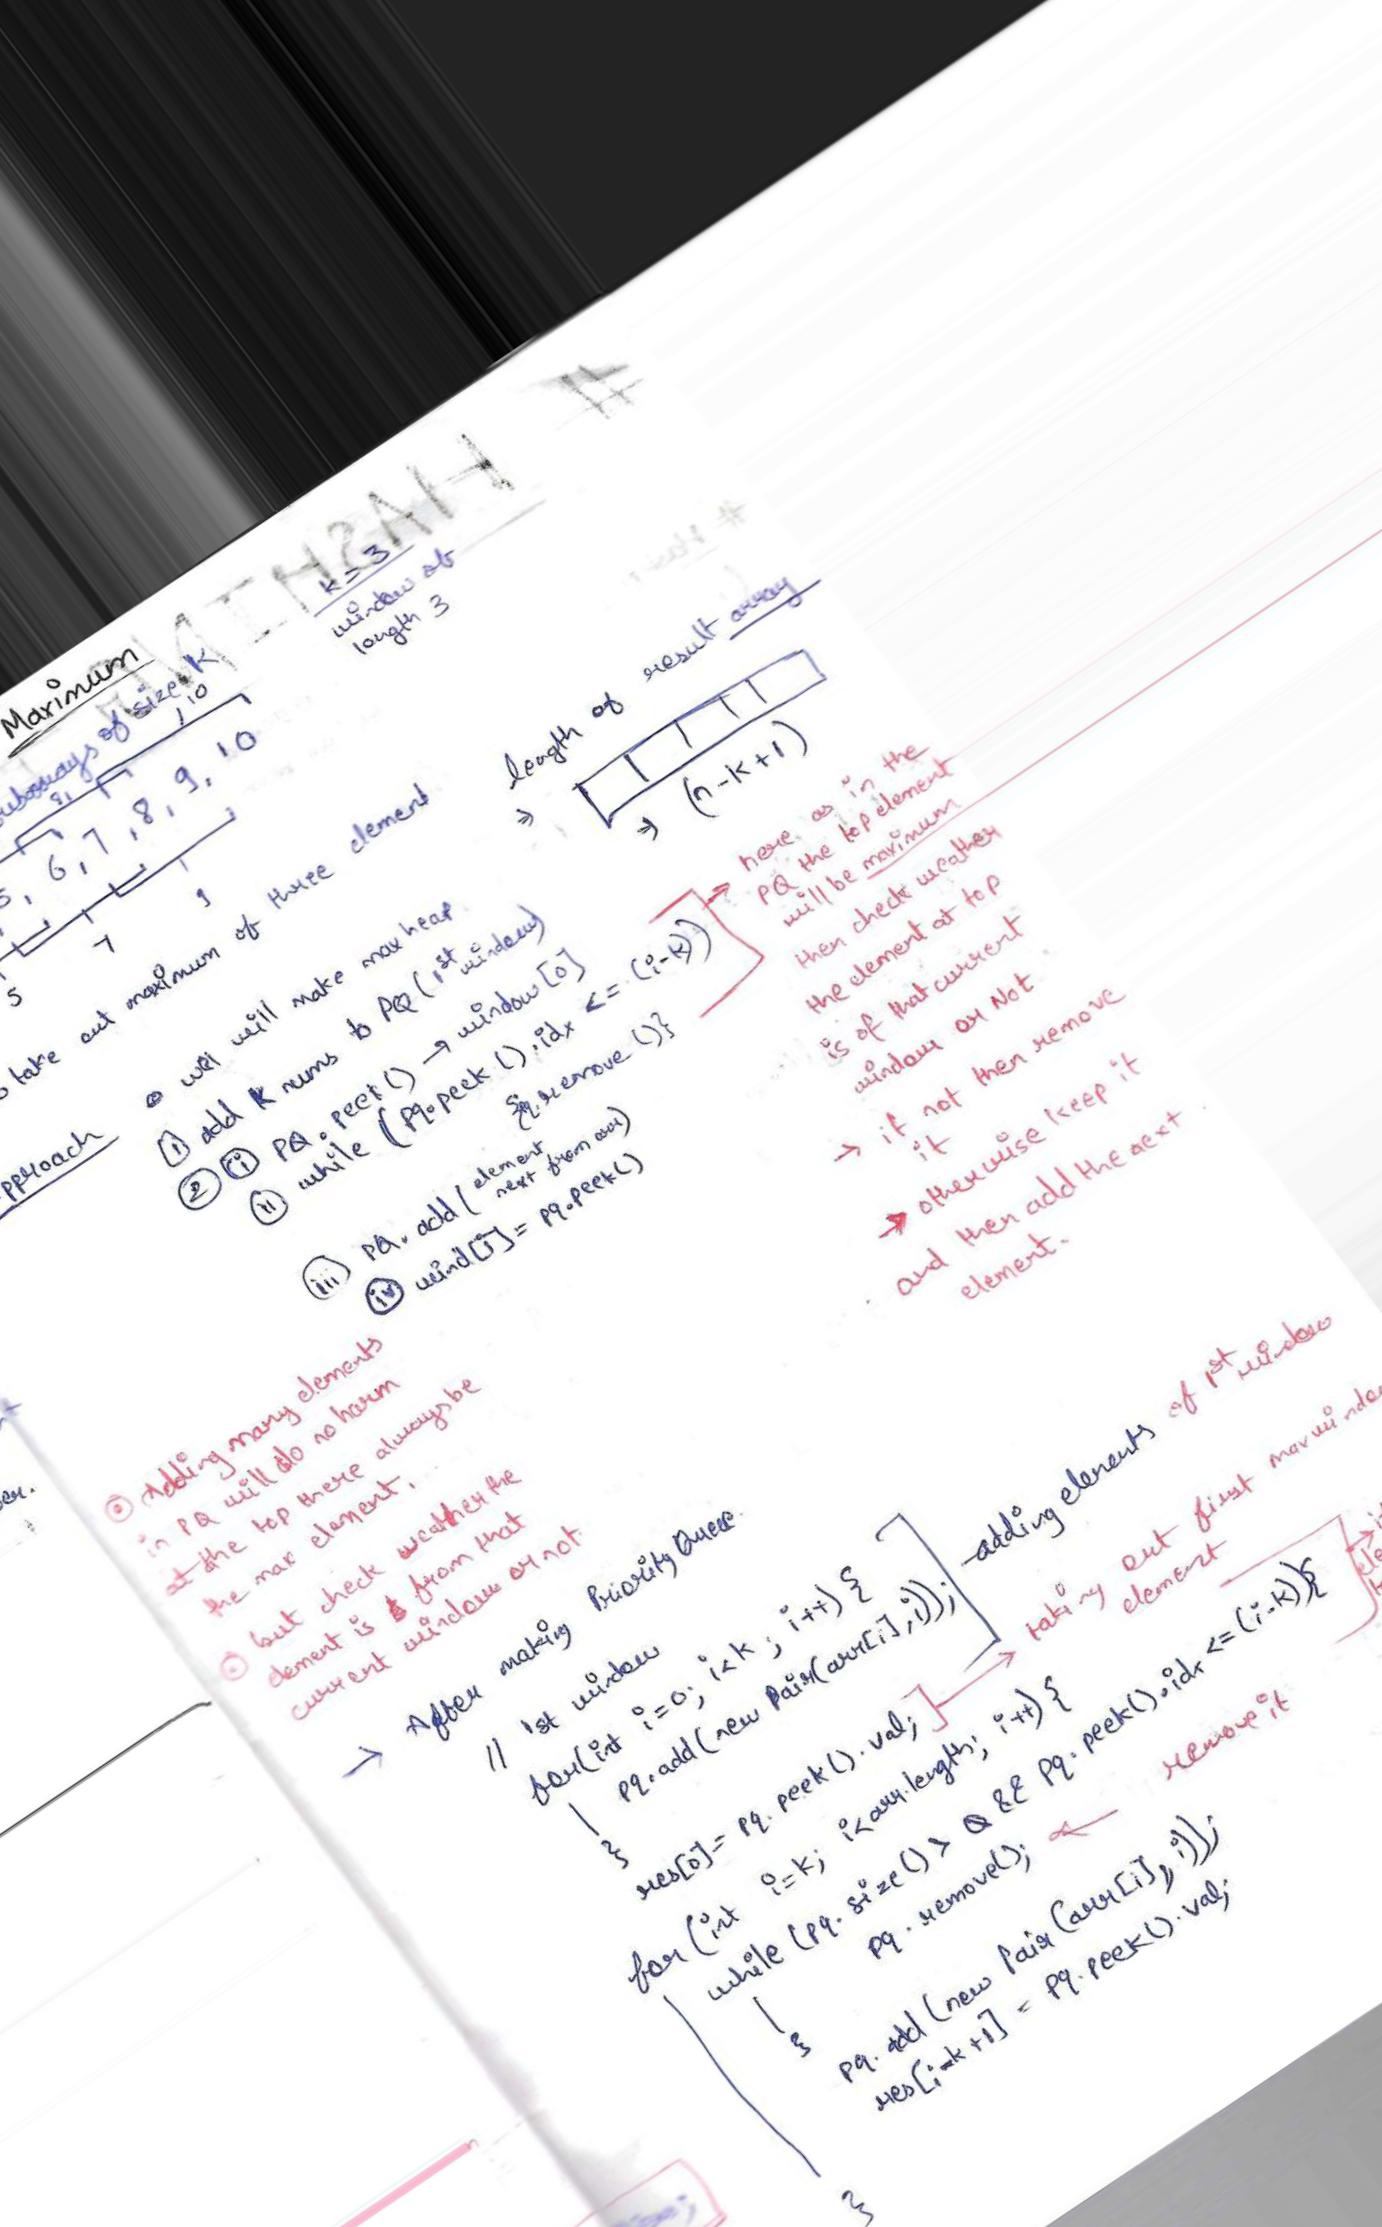 Maximum
subarrays of size K
K = 3
window of
length 3
, 10
8,
5, 6, 7, 8, 9, 10
5
7
9
take out maximum of three element
length of result array
⇒
⇒ (n-k+1)
Approach
• wei will make max heap.
(i) add K nums to PQ (1st window)
(2) (i) PQ. peek() → window[0]
(ii) while (pq.peek().idx <= (i-k))
{pq.remove()}
(iii) PQ. add (element
next from arr)
(iv) wind[i] = pq.peek()
→ here as in the
PQ the top element
will be maximum
then check weather
the element at top
is of that current
window or Not
→ if not then remove
it
→ otherwise keep it
and then add the next
element.
Adding many elements
in PQ will do no harm
at the top there always be
the max element.
but check weather the
element is from that
current window or not
→ After making Priority Queue.
// 1st window
for(int i=0; i<k ; i++) {
pq.add(new Pair(arr[i],i));
}
adding elements of 1st window
res[0] = pq. peek().val;
taking out first max window
element
for (int i=k; i<arr.length; i++) {
while (pq. size() > 0 && pq. peek().idx <= (i-k)){
pq. remove();
remove it
}
pq. add (new Pair (arr[i], i));
res[i-k+1] = pq.peek().val;
}